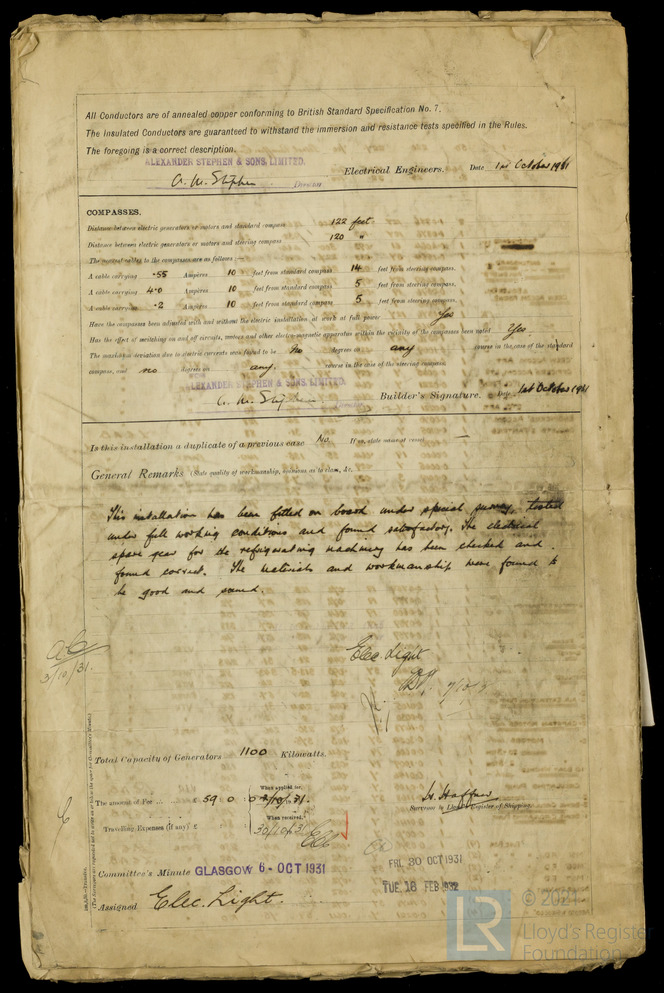 All Conductors are of annealed copper conforming to British Standard Specification No. 7.
The Insulated Conductors are guaranteed to withstand the immersion and resistance tests specified in the Rules.
The foregoing is a correct description.
ALEXANDER STEPHEN & SONS, LIMITED.
A. M. Stephen Director Electrical Engineers. Date 1st October 1931
COMPASSES.
Distance between electric generators or motors and standard compass 122 feet
Distance between electric generators or motors and steering compass 120 "
The nearest cables to the compasses are as follows :—
A cable carrying .55 Ampères 10 feet from standard compass 14 feet from steering compass.
A cable carrying 4.0 Ampères 10 feet from standard compass 5 feet from steering compass.
A cable carrying .2 Ampères 10 feet from standard compass 5 feet from steering compass.
Have the compasses been adjusted with and without the electric installation at work at full power Yes
Has the effect of switching on and off circuits, motors and other electro-magnetic apparatus within the vicinity of the compasses been noted Yes
The maximum deviations due to electric currents were found to be No degrees on any course in the case of the standard
compass, and no degrees on any. course in the case of the steering compass.
ALEXANDER STEPHEN & SONS, LIMITED.
A. M. Stephen Director Builder's Signature. Date 1st October 1931
Is this installation a duplicate of a previous case No. If so, state name of vessel —
General Remarks (State quality of workmanship, opinions as to class, &c.
This installation has been fitted on board under special survey, tested
under full working conditions and found satisfactory. The electrical
spare gear for the refrigerating machinery has been checked and
found correct. The materials and workmanship were found to
be good and sound.
3/10/31.
Elec Light
Total Capacity of Generators 1100 Kilowatts.
The amount of Fee ... £ 59 0 0 When applied for, 31.
Travelling Expenses (if any) £ When received, 30/10/31
Surveyor to Lloyd's Register of Shipping.
Committee's Minute GLASGOW 6-OCT 1931
FRI. 30 OCT 1931
TUE. 16 FEB 1932
Assigned Elec. Light.
LR © 2021
Lloyd's Register
Foundation